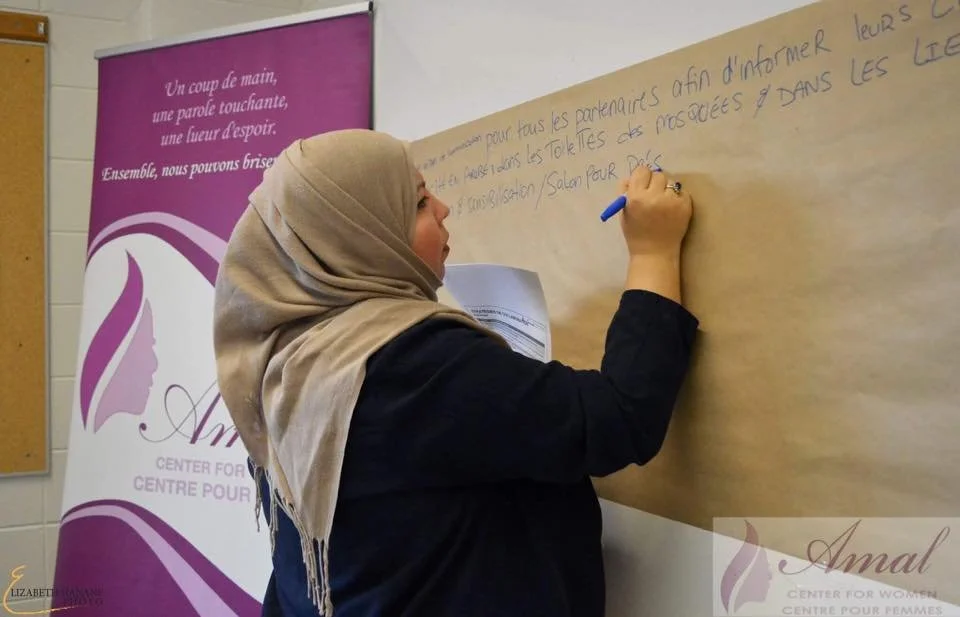 Un coup de main,
une parole touchante,
une lueur d'espoir.
Ensemble, nous pouvons briser
CENTER FOR
CENTRE POUR
pour tous les partenaires afin d'informer leurs
EN ARABE dans LES TOILETTES des MOSQUÉES & DANS LES LIE
& SENSIBILISATION / SALON POUR
Amal
CENTER FOR WOMEN
CENTRE POUR FEMMES
ELIZABETH HANANE
PHOTO